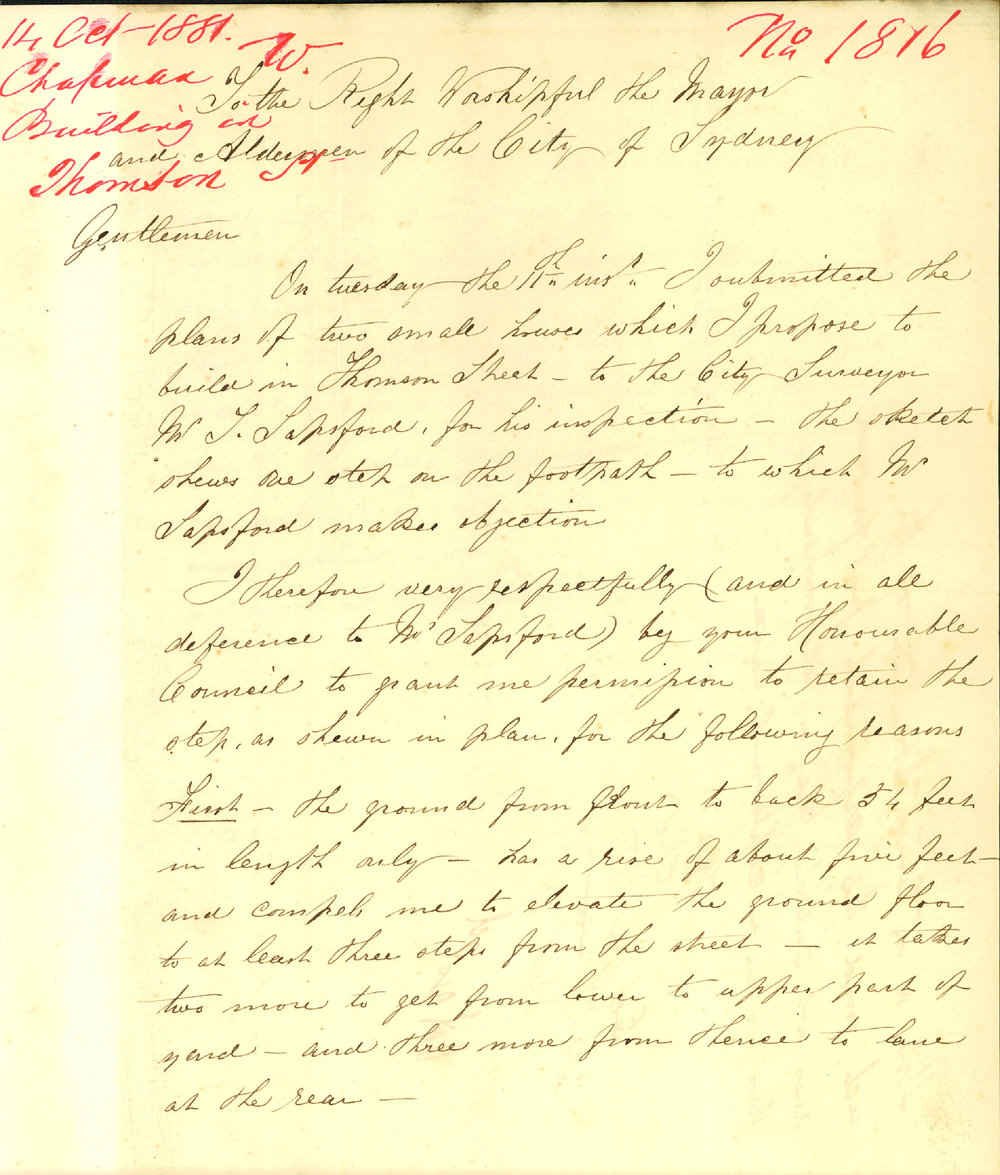 14 Oct - 1881.
Chapman W.
Building in
Thomson St
No 1816
To the Right Worshipful the Mayor
and Aldermen of the City of Sydney
Gentlemen
On tuesday the 11th inst. I submitted the
plans of two small houses which I propose to
build in Thomson Street - to the City Surveyor
Mr T. Sapsford, for his inspection - the sketch
shews one step on the footpath - to which Mr
Sapsford makes objection
I therefore very respectfully (and in all
deference to Mr Sapsford) beg your Honourable
Council to grant me permission to retain the
step, as shewn in plan, for the following reasons
First - the ground from front to back 54 feet
in length only - has a rise of about five feet -
and compels me to elevate the ground floor
to at least three steps from the street - it takes
two more to get from lower to upper part of
yard - and three more from thence to lane
at the rear -